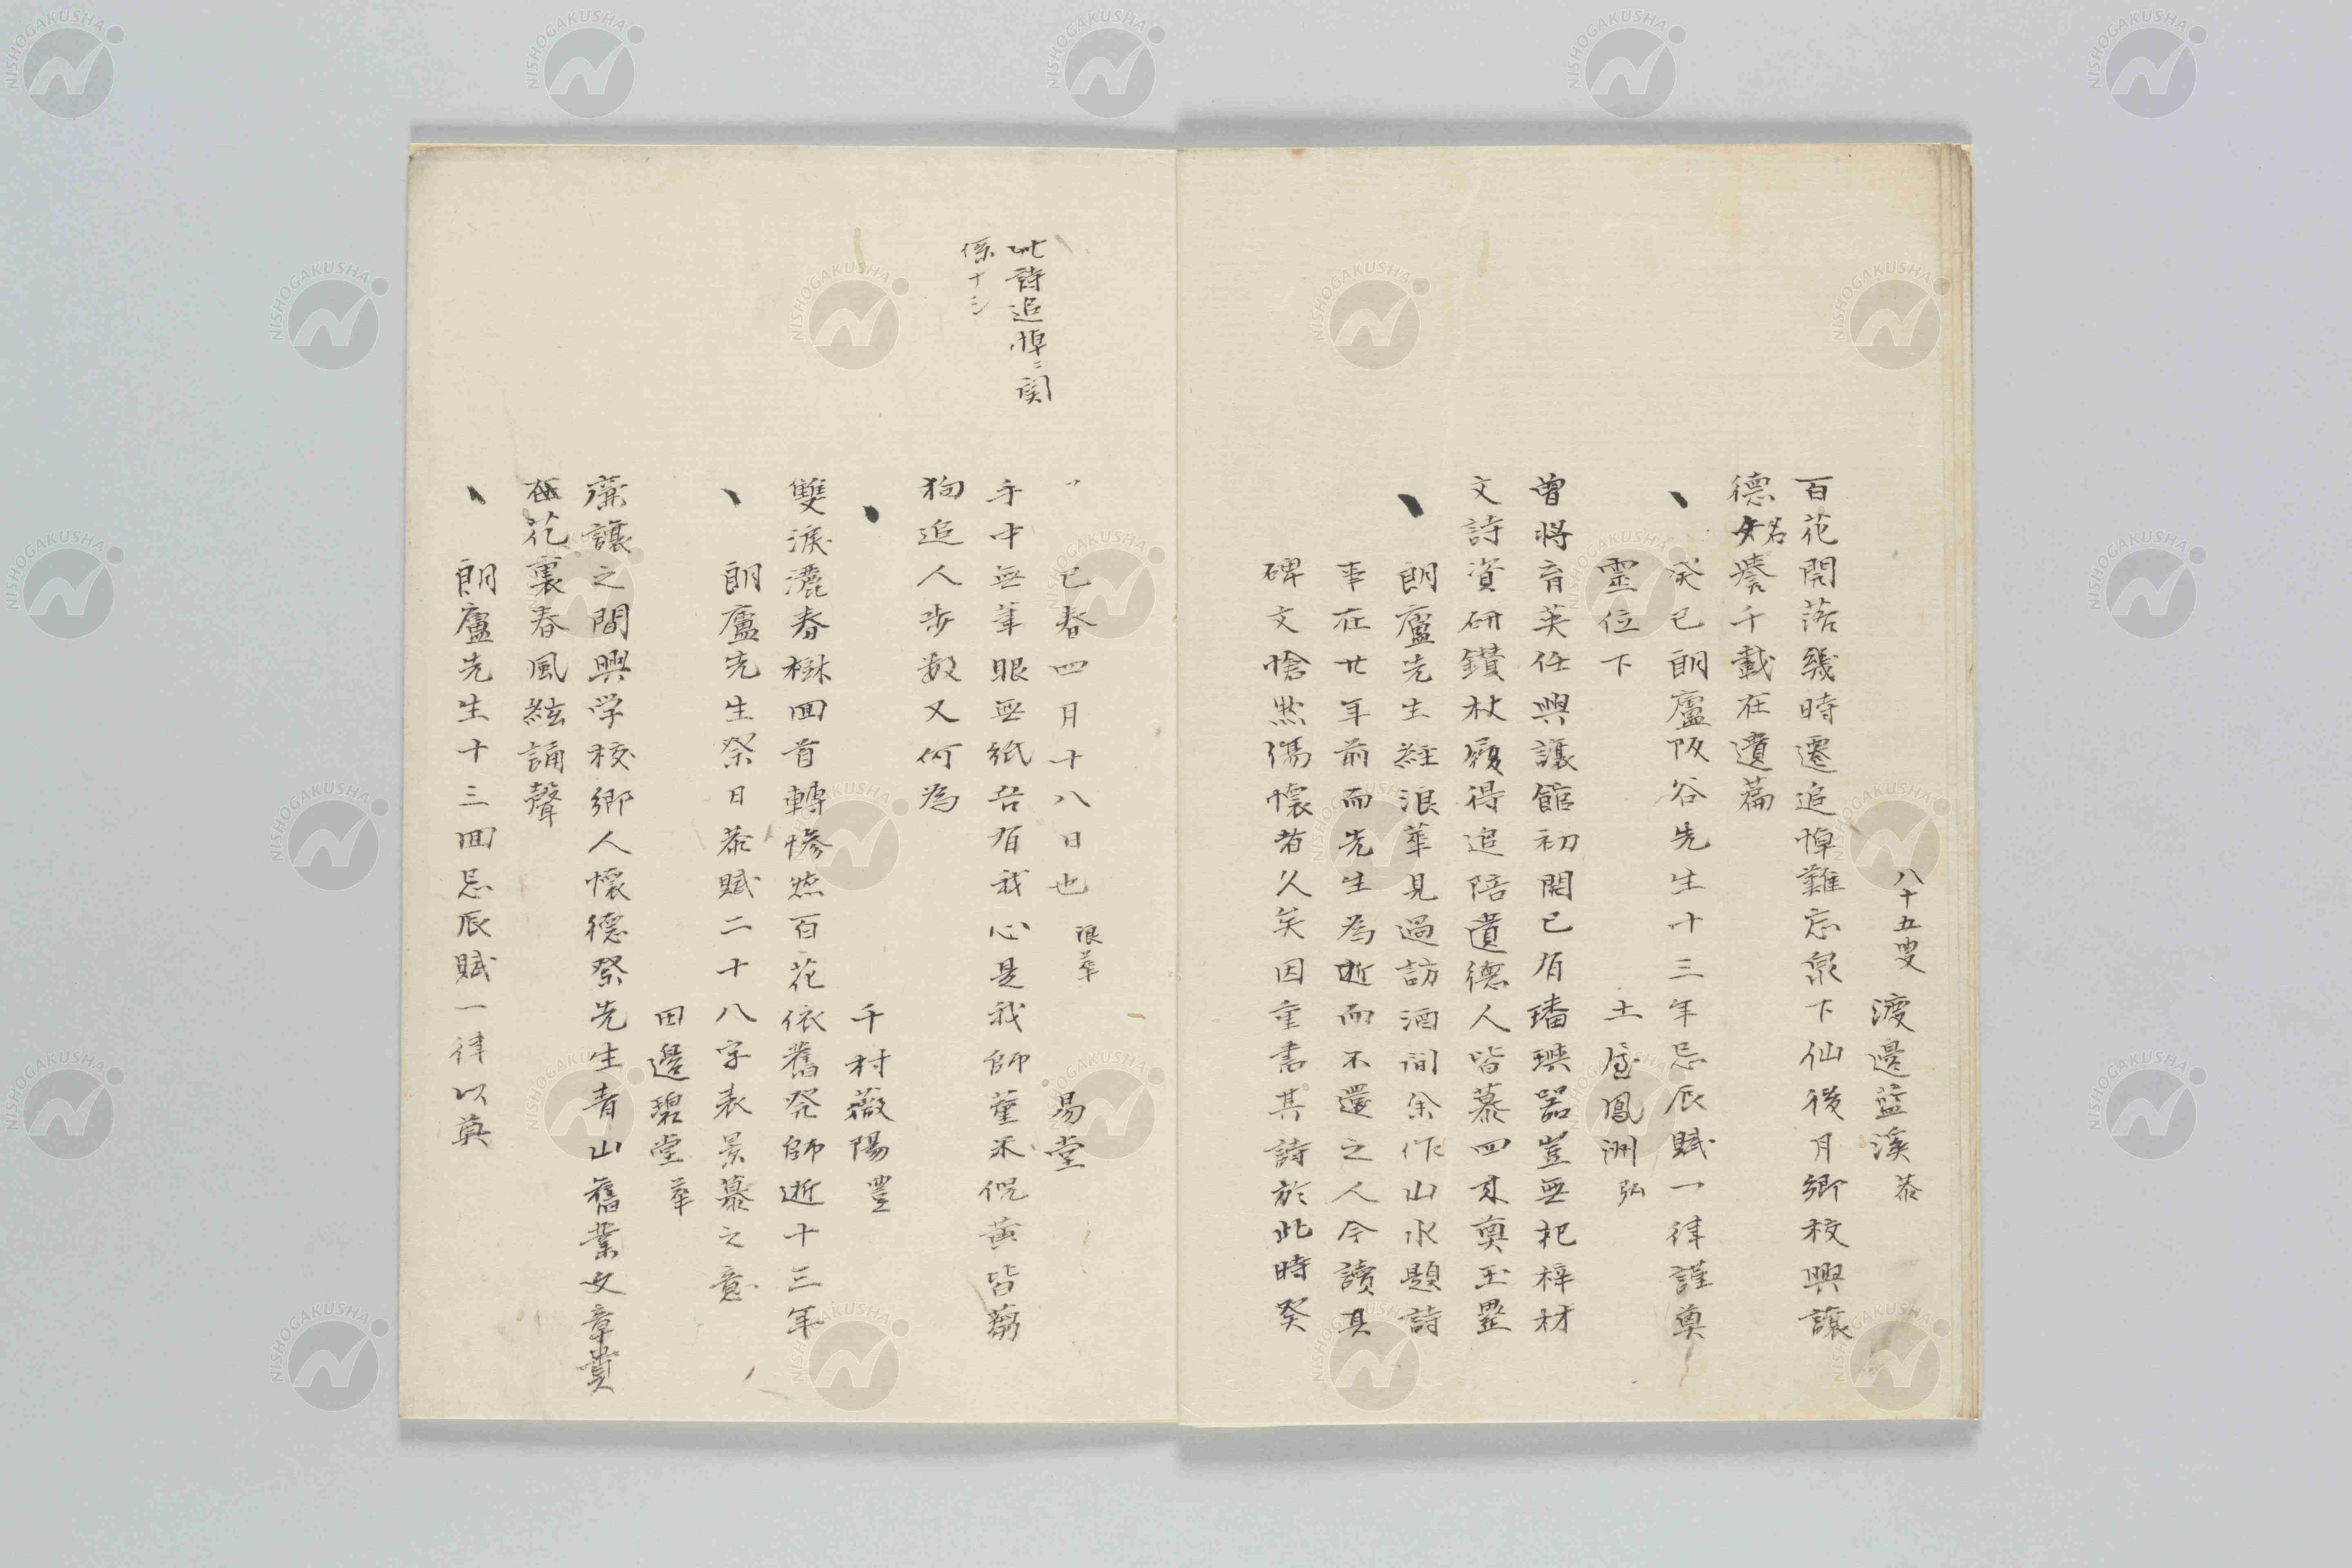 八十五叟　渡邉藍溪　恭
百花開落幾時遷追悼難忘泉下仙後月鄉校興讓
德名聲千載在遺篇
癸巳朗廬阪谷先生十三年忌辰賦一律謹奠
靈位下　土屋鳳洲　弘
曾將育英任興讓館初開已有璠璵器豈無杞梓材
文詩資研鑽杖履得追陪遺德人皆慕四來奠玉罍
朗廬先生經浪華見過訪酒間余作山水題詩
事在廿年前而先生為逝而不還之人今讀其
碑文愴然傷懷者久矣因重書其詩於此時癸
巳春四月十八日也　浪華　易堂
此詩追悼ニ関
係十三
手中無筆眼無紙吾有我心是我師董米倪黃皆芻
狗追人步數又何為
千村薇陽　豐
雙淚灑春樹回首轉慘然百花依舊発師逝十三年
朗廬先生祭日恭賦二十八字表景慕之意
田邊碧堂　華
廉讓之間興学校鄉人懷德祭先生青山舊業文章貴
花裏春風絃誦聲
朗廬先生十三回忌辰賦一律以奠
NISHOGAKUSHA